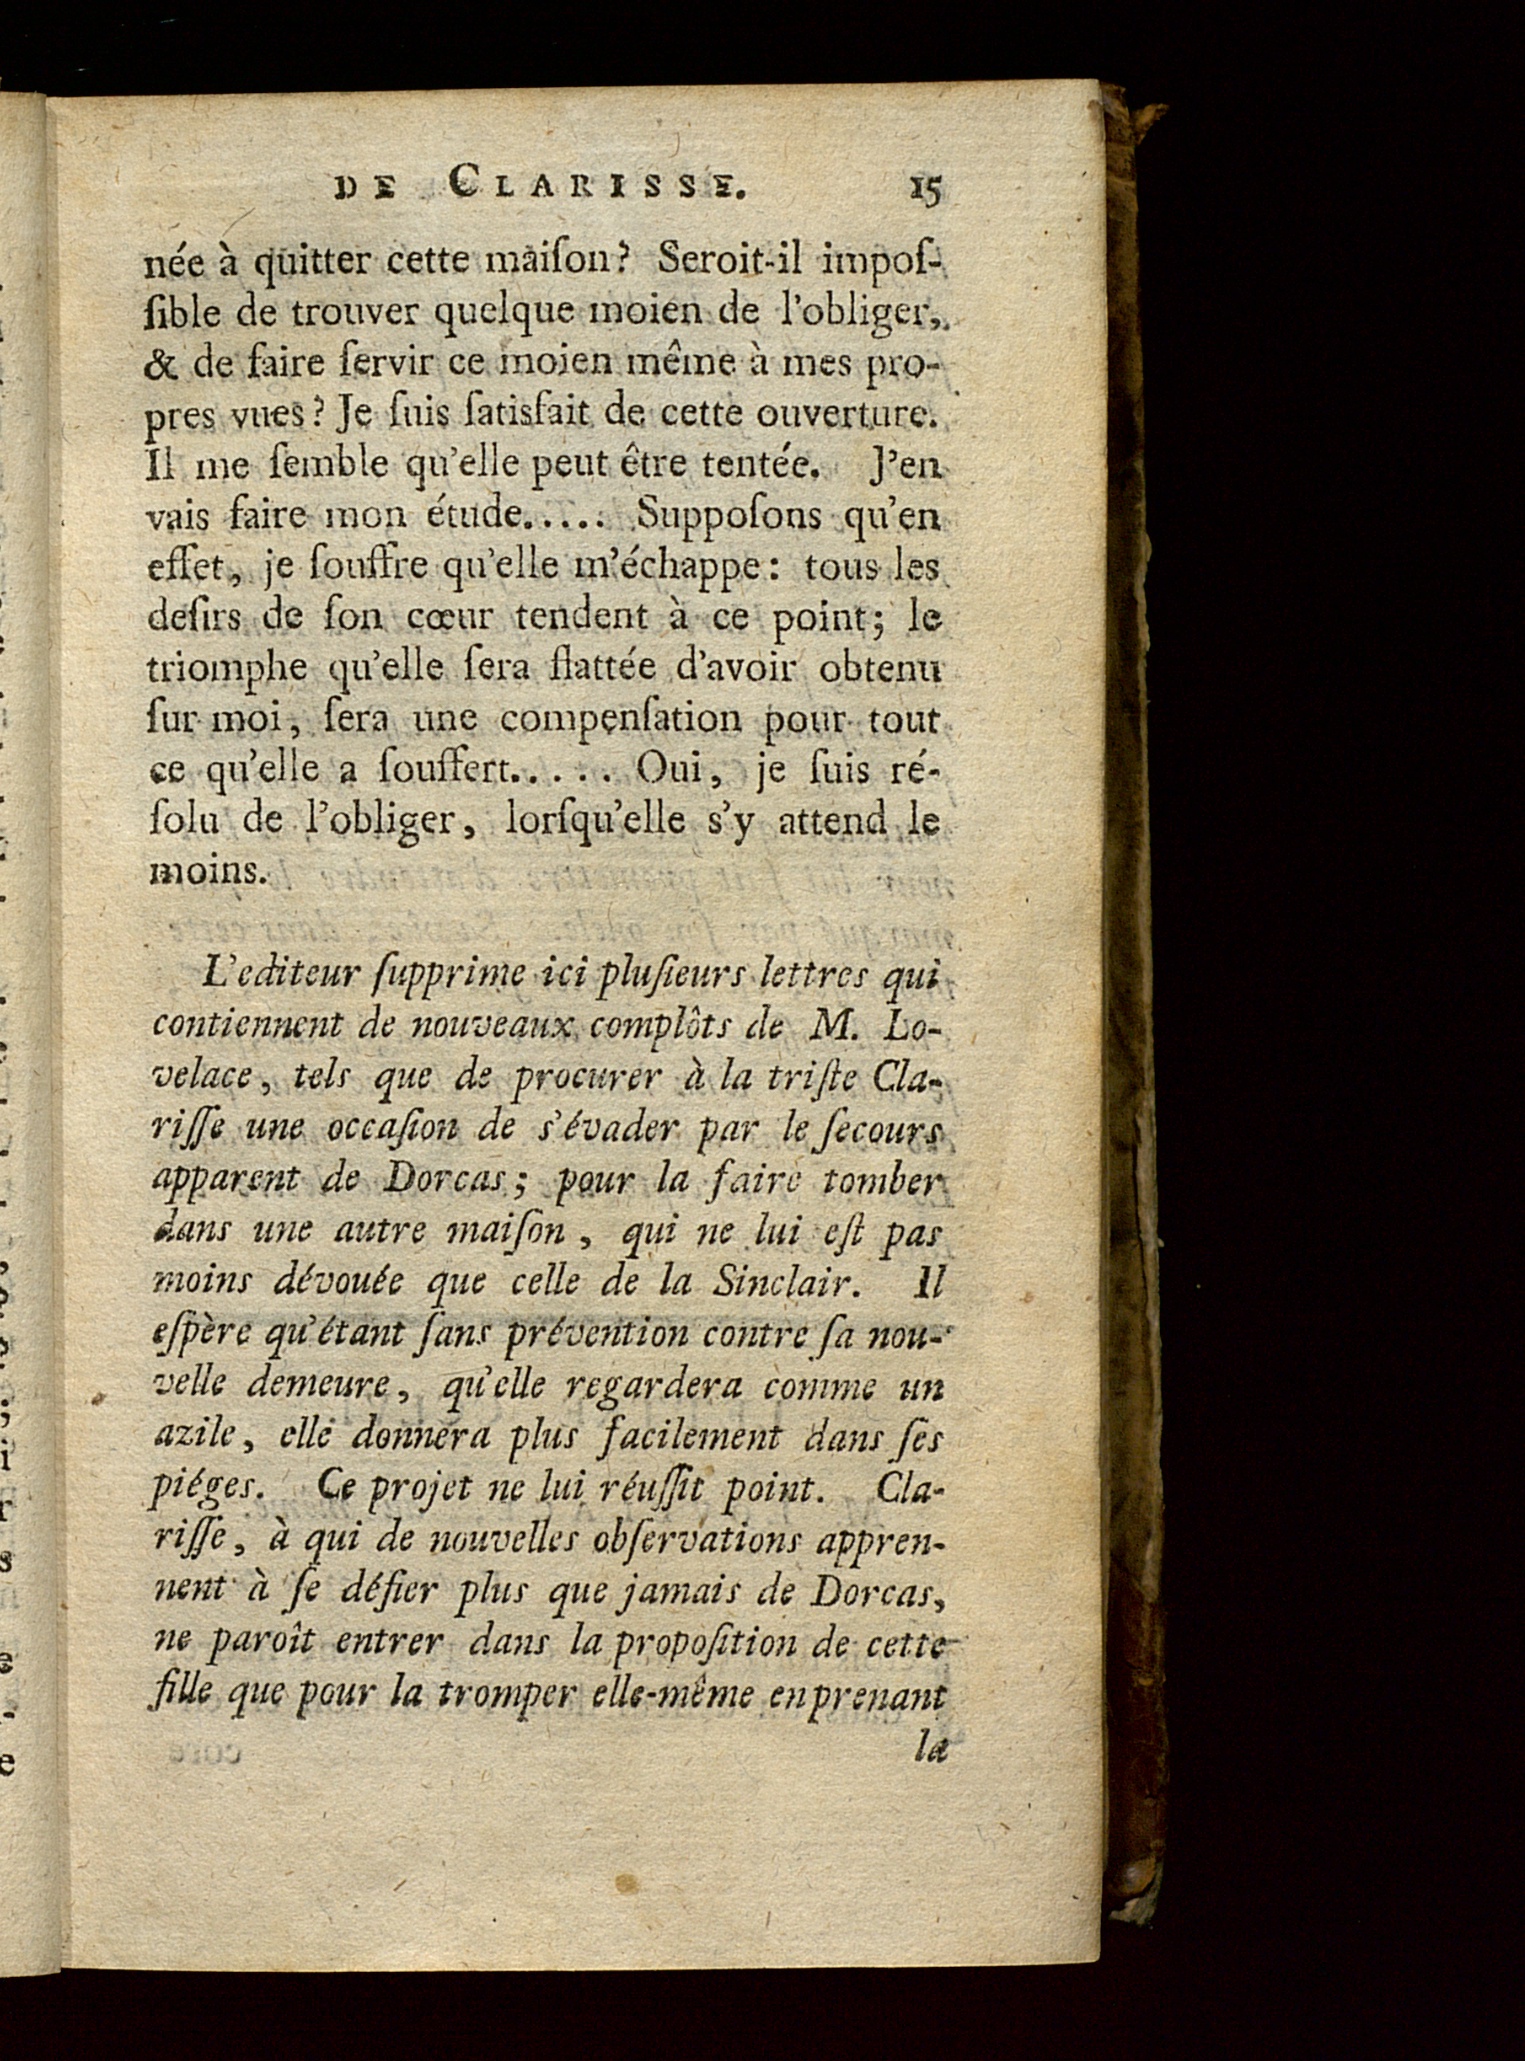 DE CLARISSE. 15
née à quitter cette maiſon? Seroit-il impoſ-
ſible de trouver quelque moien de l'obliger,
& de faire ſervir ce moien même à mes pro-
pres vues? Je ſuis ſatisfait de cette ouverture.
Il me ſemble qu'elle peut être tentée. J'en
vais faire mon étude..... Suppoſons qu'en
effet, je ſouffre qu'elle m'échappe: tous les
deſirs de ſon cœur tendent à ce point; le
triomphe qu'elle ſera flattée d'avoir obtenu
ſur moi, ſera une compenſation pour tout
ce qu'elle a ſouffert..... Oui, je ſuis ré-
ſolu de l'obliger, lorſqu'elle s'y attend le
moins.
L'editeur ſupprime ici pluſieurs lettres qui
contiennent de nouveaux complôts de M. Lo-
velace, tels que de procurer à la triſte Cla-
riſſe une occaſion de s'évader par le ſecours
apparent de Dorcas; pour la faire tomber
dans une autre maiſon, qui ne lui eſt pas
moins dévouée que celle de la Sinclair. Il
eſpère qu'étant ſans prévention contre ſa nou-
velle demeure, qu'elle regardera comme un
azile, elle donnera plus facilement dans ſes
piéges. Ce projet ne lui réuſſit point. Cla-
riſſe, à qui de nouvelles obſervations appren-
nent à ſe défier plus que jamais de Dorcas,
ne paroît entrer dans la propoſition de cette
fille que pour la tromper elle-même en prenant
la